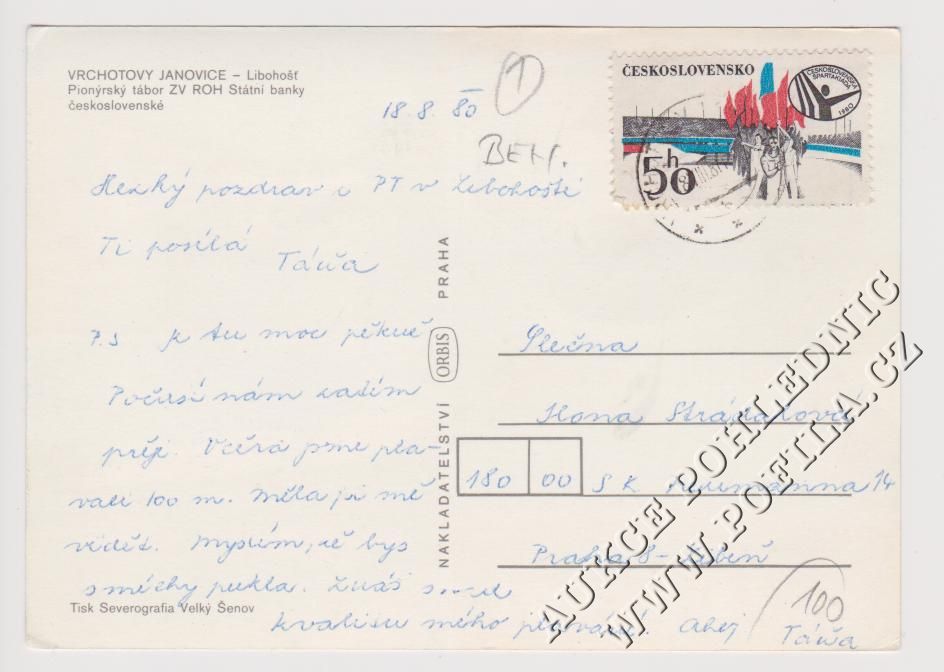 VRCHOTOVY JANOVICE – Libohošť
Pionýrský tábor ZV ROH Státní banky
československé
18. 8. 80
1
BEN.
ČESKOSLOVENSKO
ČESKOSLOVENSKÁ SPARTAKIÁDA 1980
50 h
Hezký pozdrav z PT v Libohošti
Ti posílá
Táňa
P.S Je tu moc pěkně
Počasí nám zatím
přeji. Včera jsme pla-
vali 100 m. Měla jsi mě
vidět. Myslím, že bys
smíchy pukla. Znáš
kvalitu mého plavání. Ahoj
Táňa
NAKLADATELSTVÍ ORBIS PRAHA
Slečna
Ilona
180 00 S K 14
Praha 8 - Libeň
Tisk Severografia Velký Šenov
100
AUKCE POHLEDNIC
WWW.POFILA.CZ